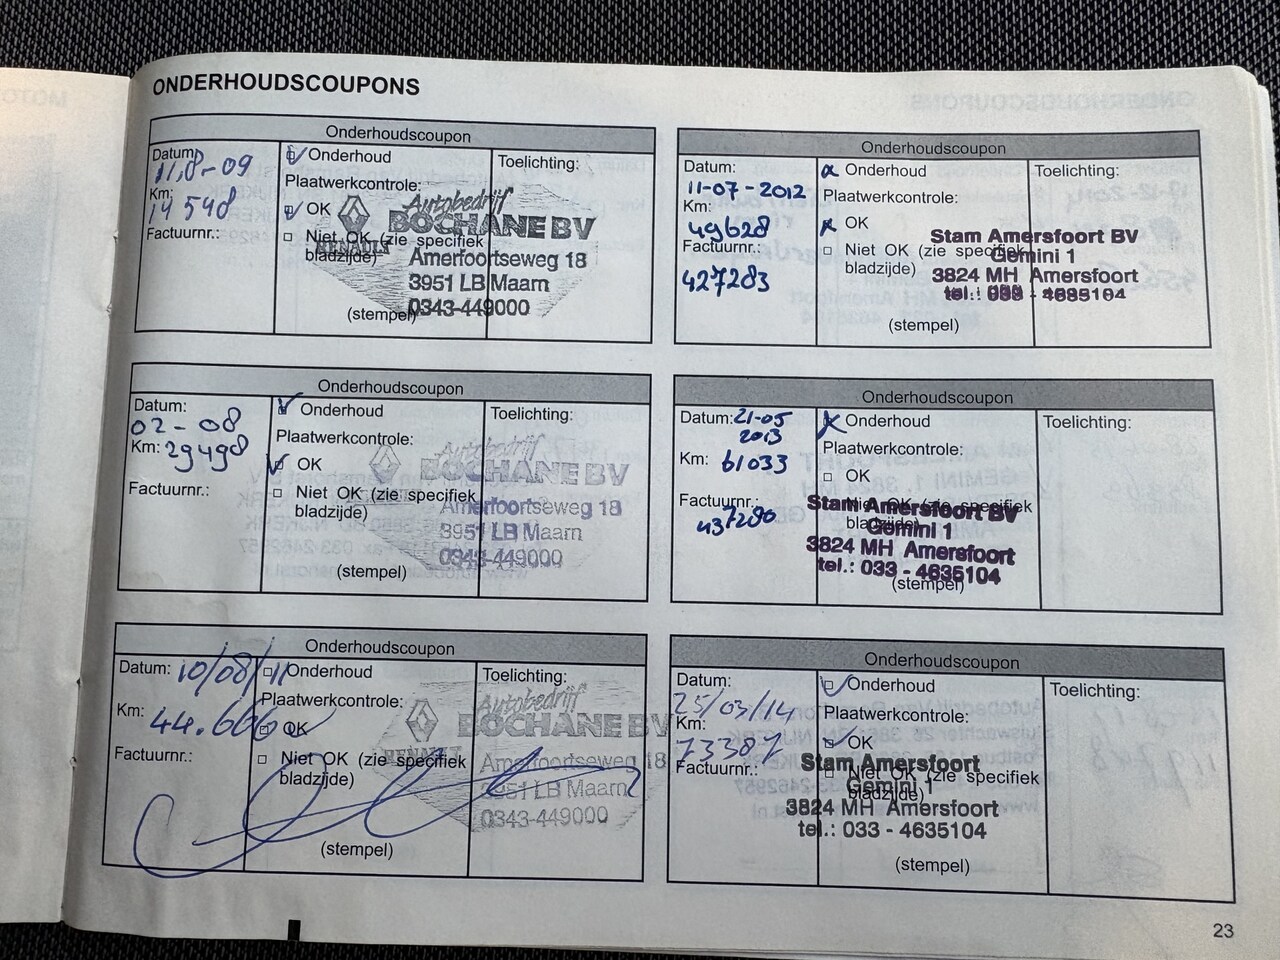 ONDERHOUDSCOUPONS
Onderhoudscoupon
Datum:
11,08-09
Km:
14 548
Factuurnr.:
Onderhoud
Plaatwerkcontrole:
OK
Niet OK (zie specifiek
bladzijde)
(stempel)
Toelichting:
Autobedrijf
BOCHANE BV
RENAULT
Amerfoortseweg 18
3951 LB Maarn
0343-449000
Onderhoudscoupon
Datum:
11-07-2012
Km:
49628
Factuurnr.:
427283
Onderhoud
Plaatwerkcontrole:
OK
Niet OK (zie specifiek
bladzijde)
(stempel)
Toelichting:
Stam Amersfoort BV
Gemini 1
3824 MH Amersfoort
tel.: 033 - 4635104
Onderhoudscoupon
Datum:
02-08
Km: 29498
Factuurnr.:
Onderhoud
Plaatwerkcontrole:
OK
Niet OK (zie specifiek
bladzijde)
(stempel)
Toelichting:
Autobedrijf
BOCHANE BV
Amerfoortseweg 18
3951 LB Maarn
0343-449000
Onderhoudscoupon
Datum: 21-05
2013
Km: 61033
Factuurnr.:
437280
Onderhoud
Plaatwerkcontrole:
OK
Niet OK (zie specifiek
bladzijde)
(stempel)
Toelichting:
Stam Amersfoort BV
Gemini 1
3824 MH Amersfoort
tel.: 033 - 4635104
Onderhoudscoupon
Datum: 10/08/11
Km: 44.606
Factuurnr.:
Onderhoud
Plaatwerkcontrole:
OK
Niet OK (zie specifiek
bladzijde)
(stempel)
Toelichting:
Autobedrijf
BOCHANE BV
RENAULT
Amerfoortseweg 18
3951 LB Maarn
0343-449000
Onderhoudscoupon
Datum:
25/03/14
Km:
73387
Factuurnr.:
Onderhoud
Plaatwerkcontrole:
OK
Niet OK (zie specifiek
bladzijde)
(stempel)
Toelichting:
Stam Amersfoort
Gemini 1
3824 MH Amersfoort
tel.: 033 - 4635104
23